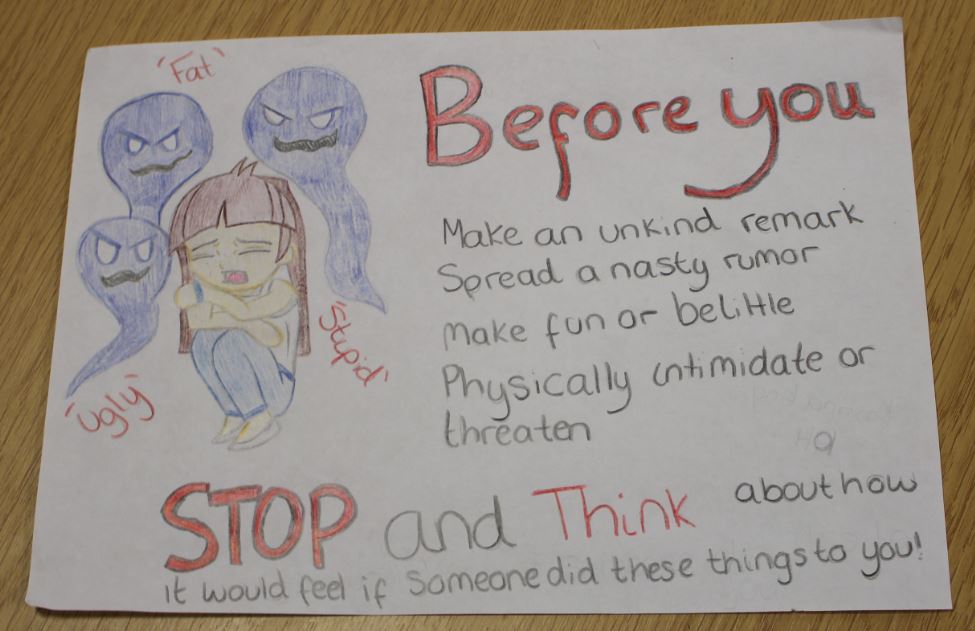 'Fat'
Before you
Make an unkind remark
Spread a nasty rumor
Make fun or belittle
Physically intimidate or
threaten
'Stupid'
'Ugly'
STOP and Think about how
it would feel if someone did these things to you!